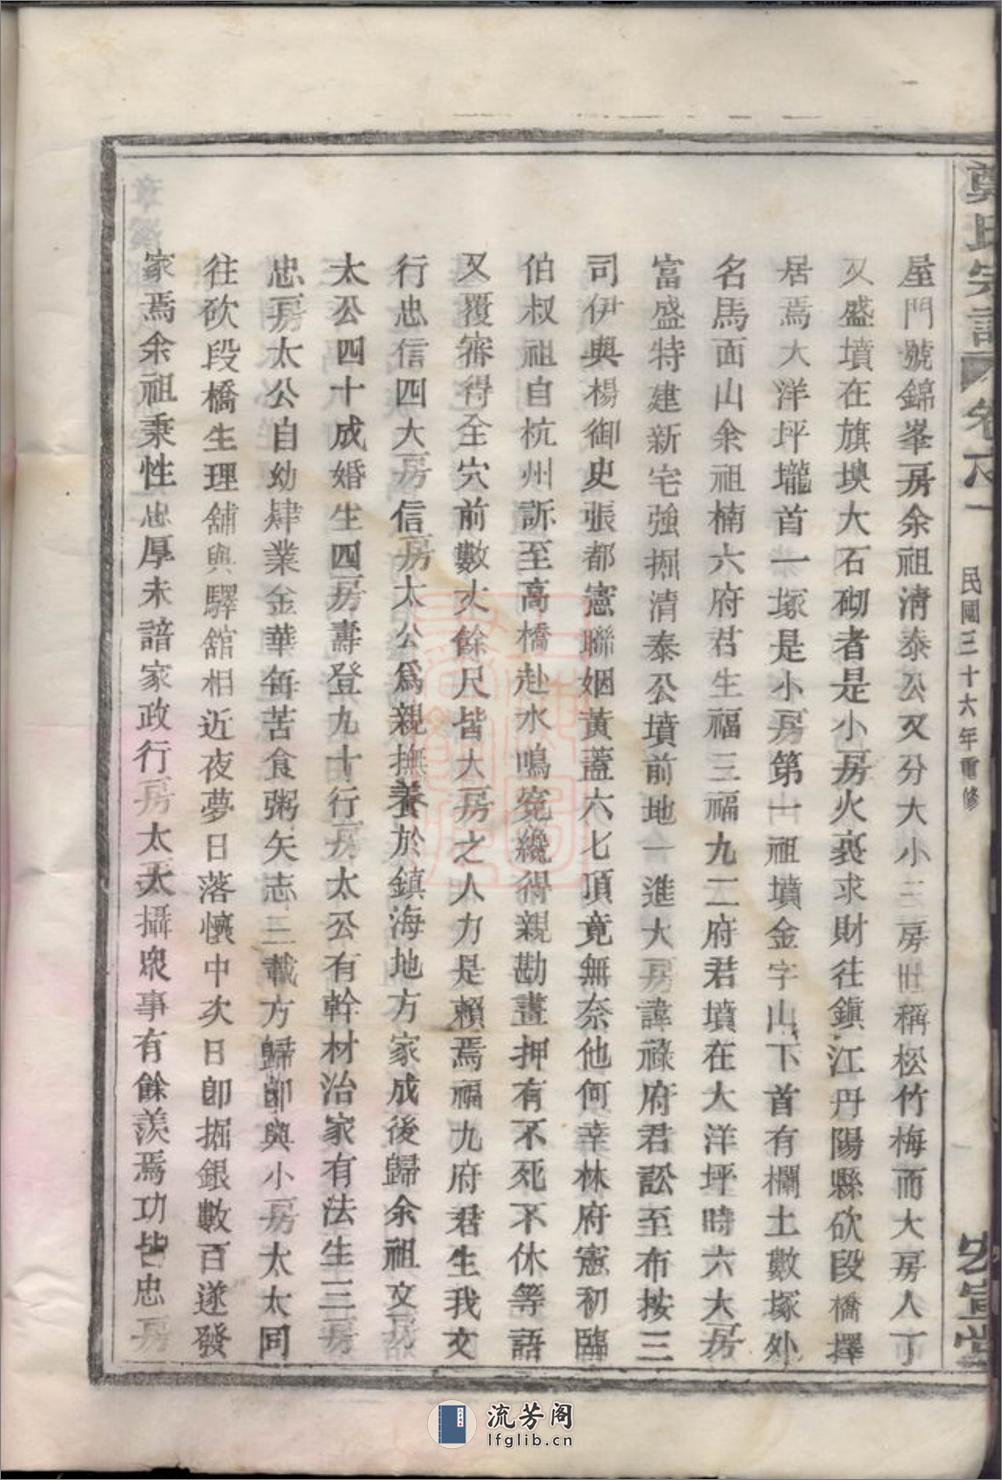 氏宗譜 卷 民國三十六年重修
屋門號錦峯房余祖清泰公又分大小三房世稱松竹梅而大房人丁
又盛墳在旗墺大石砌者是小房火裘求財往鎮江丹陽縣砍段橋擇
居焉大洋坪壠首一塚是小房第一祖墳金字山下首有欄土數塚外
名馬面山余祖楠六府君生福三福九二府君墳在大洋坪時六大房
富盛特建新宅強掘清泰公墳前地一進大房諱祿府君訟至布按三
司伊與楊御史張都憲聯姻黃蓋六七頂竟無奈他何幸林府憲初臨
伯叔祖自杭州訴至高橋赴水鳴寃纔得親勘晝押有不死不休等語
又覆審得全穴前數丈餘尺皆大房之人力是賴焉福九府君生我文
行忠信四大房信房太公爲親撫養於鎮海地方家成後歸余祖文房
太公四十成婚生四房壽登九十行房太公有幹材治家有法生三房
忠房太公自幼肆業金華每苦食粥矢志三載方歸卽與小房太太同
往砍段橋生理舖與驛舘相近夜夢日落懷中次日卽掘銀數百遂發
家焉余祖秉性忠厚未諳家政行房太太攝衆事有餘羨焉功皆忠房
流芳阁
lfglib.cn